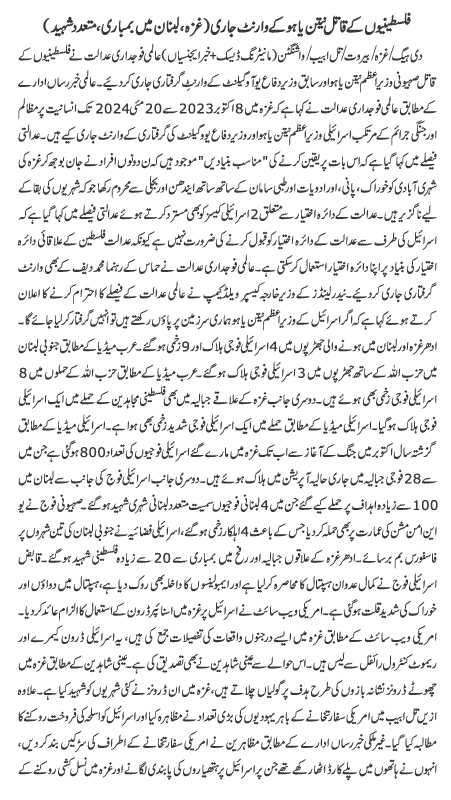 فلسطینیوں کے قاتل نیتن یاہو کے وارنٹ جاری (غزہ، لبنان میں بمباری، متعدد شہید)
دی ہیگ/غزہ/بیروت/تل ابیب/واشنگٹن (مانیٹرنگ ڈیسک+خبر ایجنسیاں) عالمی فوجداری عدالت نے فلسطینیوں کے
قاتل صہیونی وزیر اعظم نیتن یاہو اور سابق وزیر دفاع یوآو گیلنٹ کے وارنٹِ گرفتاری جاری کردیئے۔ عالمی خبر رساں ادارے
کے مطابق عالمی فوجداری عدالت نے کہا ہے کہ غزہ میں 8 اکتوبر 2023 سے 20 مئی 2024 تک انسانیت پر مظالم
اور جنگی جرائم کے مرتکب اسرائیلی وزیر اعظم نیتن یاہو اور وزیر دفاع یوو گیلنٹ کی گرفتاری کے وارنٹ جاری کیے ہیں۔ عدالتی
فیصلے میں کہا گیا ہے کہ اس بات پر یقین کرنے کی "مناسب بنیادیں" موجود ہیں کہ ان دونوں افراد نے جان بوجھ کر غزہ کی
شہری آبادی کو خوراک، پانی، اور ادویات اور طبی سامان کے ساتھ ساتھ ایندھن اور بجلی سے محروم رکھا جو کہ شہریوں کی بقا کے
لیے ناگزیر ہیں۔ عدالت کے دائرہ اختیار سے متعلق 2 اسرائیلی کیسز کو بھی مسترد کرتے ہوئے عدالتی فیصلے میں کہا گیا ہے کہ
اسرائیل کی طرف سے عدالت کے دائرہ اختیار کو قبول کرنے کی ضرورت نہیں ہے کیونکہ عدالت فلسطین کے علاقائی دائرہ
اختیار کی بنیاد پر اپنا دائرہ اختیار استعمال کرسکتی ہے۔ عالمی فوجداری عدالت نے حماس کے رہنما محمد دیف کے بھی وارنٹ
گرفتاری جاری کر دیئے۔ نیدرلینڈز کے وزیر خارجہ کیسپر ویلڈ کیمپ نے عالمی عدالت کے فیصلے کا احترام کرنے کا اعلان
کرتے ہوئے کہا ہے کہ اگر اسرائیل کے وزیر اعظم نیتن یاہو ہماری سرزمین پر پاؤں رکھتے ہیں تو انہیں گرفتار کر لیا جائے گا۔
ادھر غزہ اور لبنان میں ہونے والی جھڑپوں میں 4 اسرائیلی فوجی ہلاک اور 9 زخمی ہوگئے۔ عرب میڈیا کے مطابق جنوبی لبنان
میں حزب اللہ کے ساتھ جھڑپوں میں 3 اسرائیلی فوجی ہلاک ہوگئے۔ عرب میڈیا کے مطابق حزب اللہ کے حملوں میں 8
اسرائیلی فوجی زخمی بھی ہوئے ہیں۔ دوسری جانب غزہ کے علاقے جبالیہ میں بھی فلسطینی مجاہدین کے حملے میں ایک اسرائیلی
فوجی ہلاک ہوگیا۔ اسرائیلی میڈیا کے مطابق حملے میں ایک اسرائیلی فوجی شدید زخمی بھی ہوا ہے۔ اسرائیلی میڈیا کے مطابق
گزشتہ سال اکتوبر میں جنگ کے آغاز سے اب تک غزہ میں مارے گئے اسرائیلی فوجیوں کی تعداد 800 ہوگئی ہے جن میں
سے 28 فوجی جبالیہ میں جاری حالیہ آپریشن میں ہلاک ہوئے ہیں۔ دوسری جانب اسرائیلی فوج کی جانب سے لبنان میں
100 سے زیادہ اہداف پر حملے کیے گئے جن میں 4 لبنانی فوجیوں سمیت متعدد لبنانی شہری شہید ہوگئے۔ صہیونی فوج نے یو
این امن مشن کی عمارت پر بھی حملہ کردیا جس کے باعث 4 اہلکار زخمی ہوگئے، اسرائیلی فضائیہ نے جنوبی لبنان کی تین شہروں پر
فاسفورس بم برسائے۔ ادھر غزہ کے علاقوں جبالیہ اور رفح میں بمباری سے 20 سے زیادہ فلسطینی شہید ہوگئے۔ قابض
اسرائیلی فوج نے کمال عدوان ہسپتال کا محاصرہ کر لیا ہے اور ایمبولینسوں کا داخلہ بھی روک دیا ہے، ہسپتال میں دواؤں اور
خوراک کی شدید قلت ہوگئی ہے۔ امریکی ویب سائٹ نے اسرائیل پر غزہ میں اسنائپر ڈرون کے استعمال کا الزام عائد کردیا۔
امریکی ویب سائٹ کے مطابق غزہ میں ایسے درجنوں واقعات کی تفصیلات جمع کی ہیں، یہ اسرائیلی ڈرون کیمرے اور
ریموٹ کنٹرول رائفل سے لیس ہیں۔ اس حوالے سے عینی شاہدین نے بھی تصدیق کی ہے۔ عینی شاہدین کے مطابق غزہ میں
چھوٹے ڈرونز نشانہ بازوں کی طرح ہدف پر گولیاں چلاتے ہیں، غزہ میں ان ڈرونز نے کئی شہریوں کو شہید کیا ہے۔ علاوہ
ازیں تل ابیب میں امریکی سفارتخانے کے باہر یہودیوں کی بڑی تعداد نے مظاہرہ کیا اور اسرائیل کو اسلحہ کی فروخت روکنے کا
مطالبہ کیا گیا۔ غیر ملکی خبر رساں ادارے کے مطابق مظاہرین نے امریکی سفارتخانے کے اطراف کی سڑکیں بند کر دیں،
انہوں نے ہاتھوں میں پلے کارڈ اٹھا رکھے تھے جن پر اسرائیل پر ہتھیاروں کی پابندی لگانے اور غزہ میں نسل کشی روکنے کے